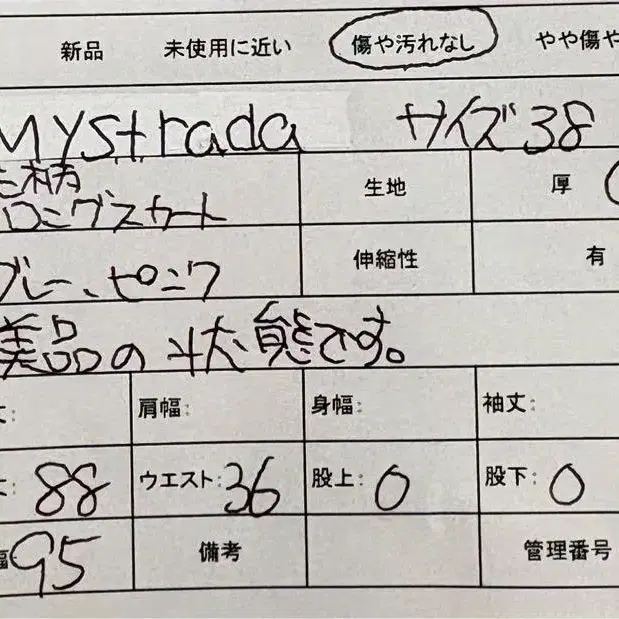 新品 未使用に近い 傷や汚れなし やや傷や
Mystrada サイズ38
花柄 生地 厚
ロングスカート
ブルー、ピンク 伸縮性 有
美品の状態です。
丈: 肩幅: 身幅: 袖丈:
88 ウエスト:36 股上:0 股下:0
幅 95 備考 管理番号